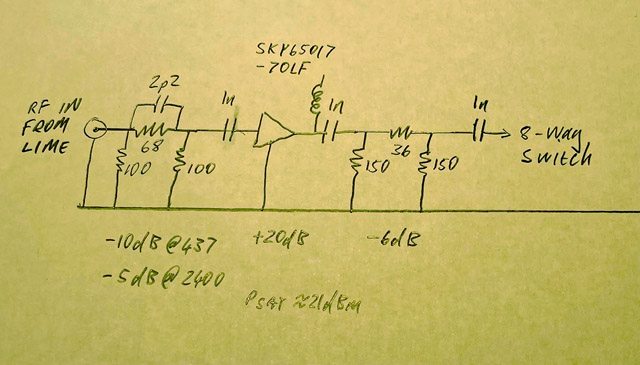 SKY65017
-70LF
2p2
1n
1n
1n
RF IN
FROM
LIME
68
100
100
36
150
150
8-Way
Switch
-10dB@437
+20dB
-6dB
-5dB@2400
PSAT ≈21dBm